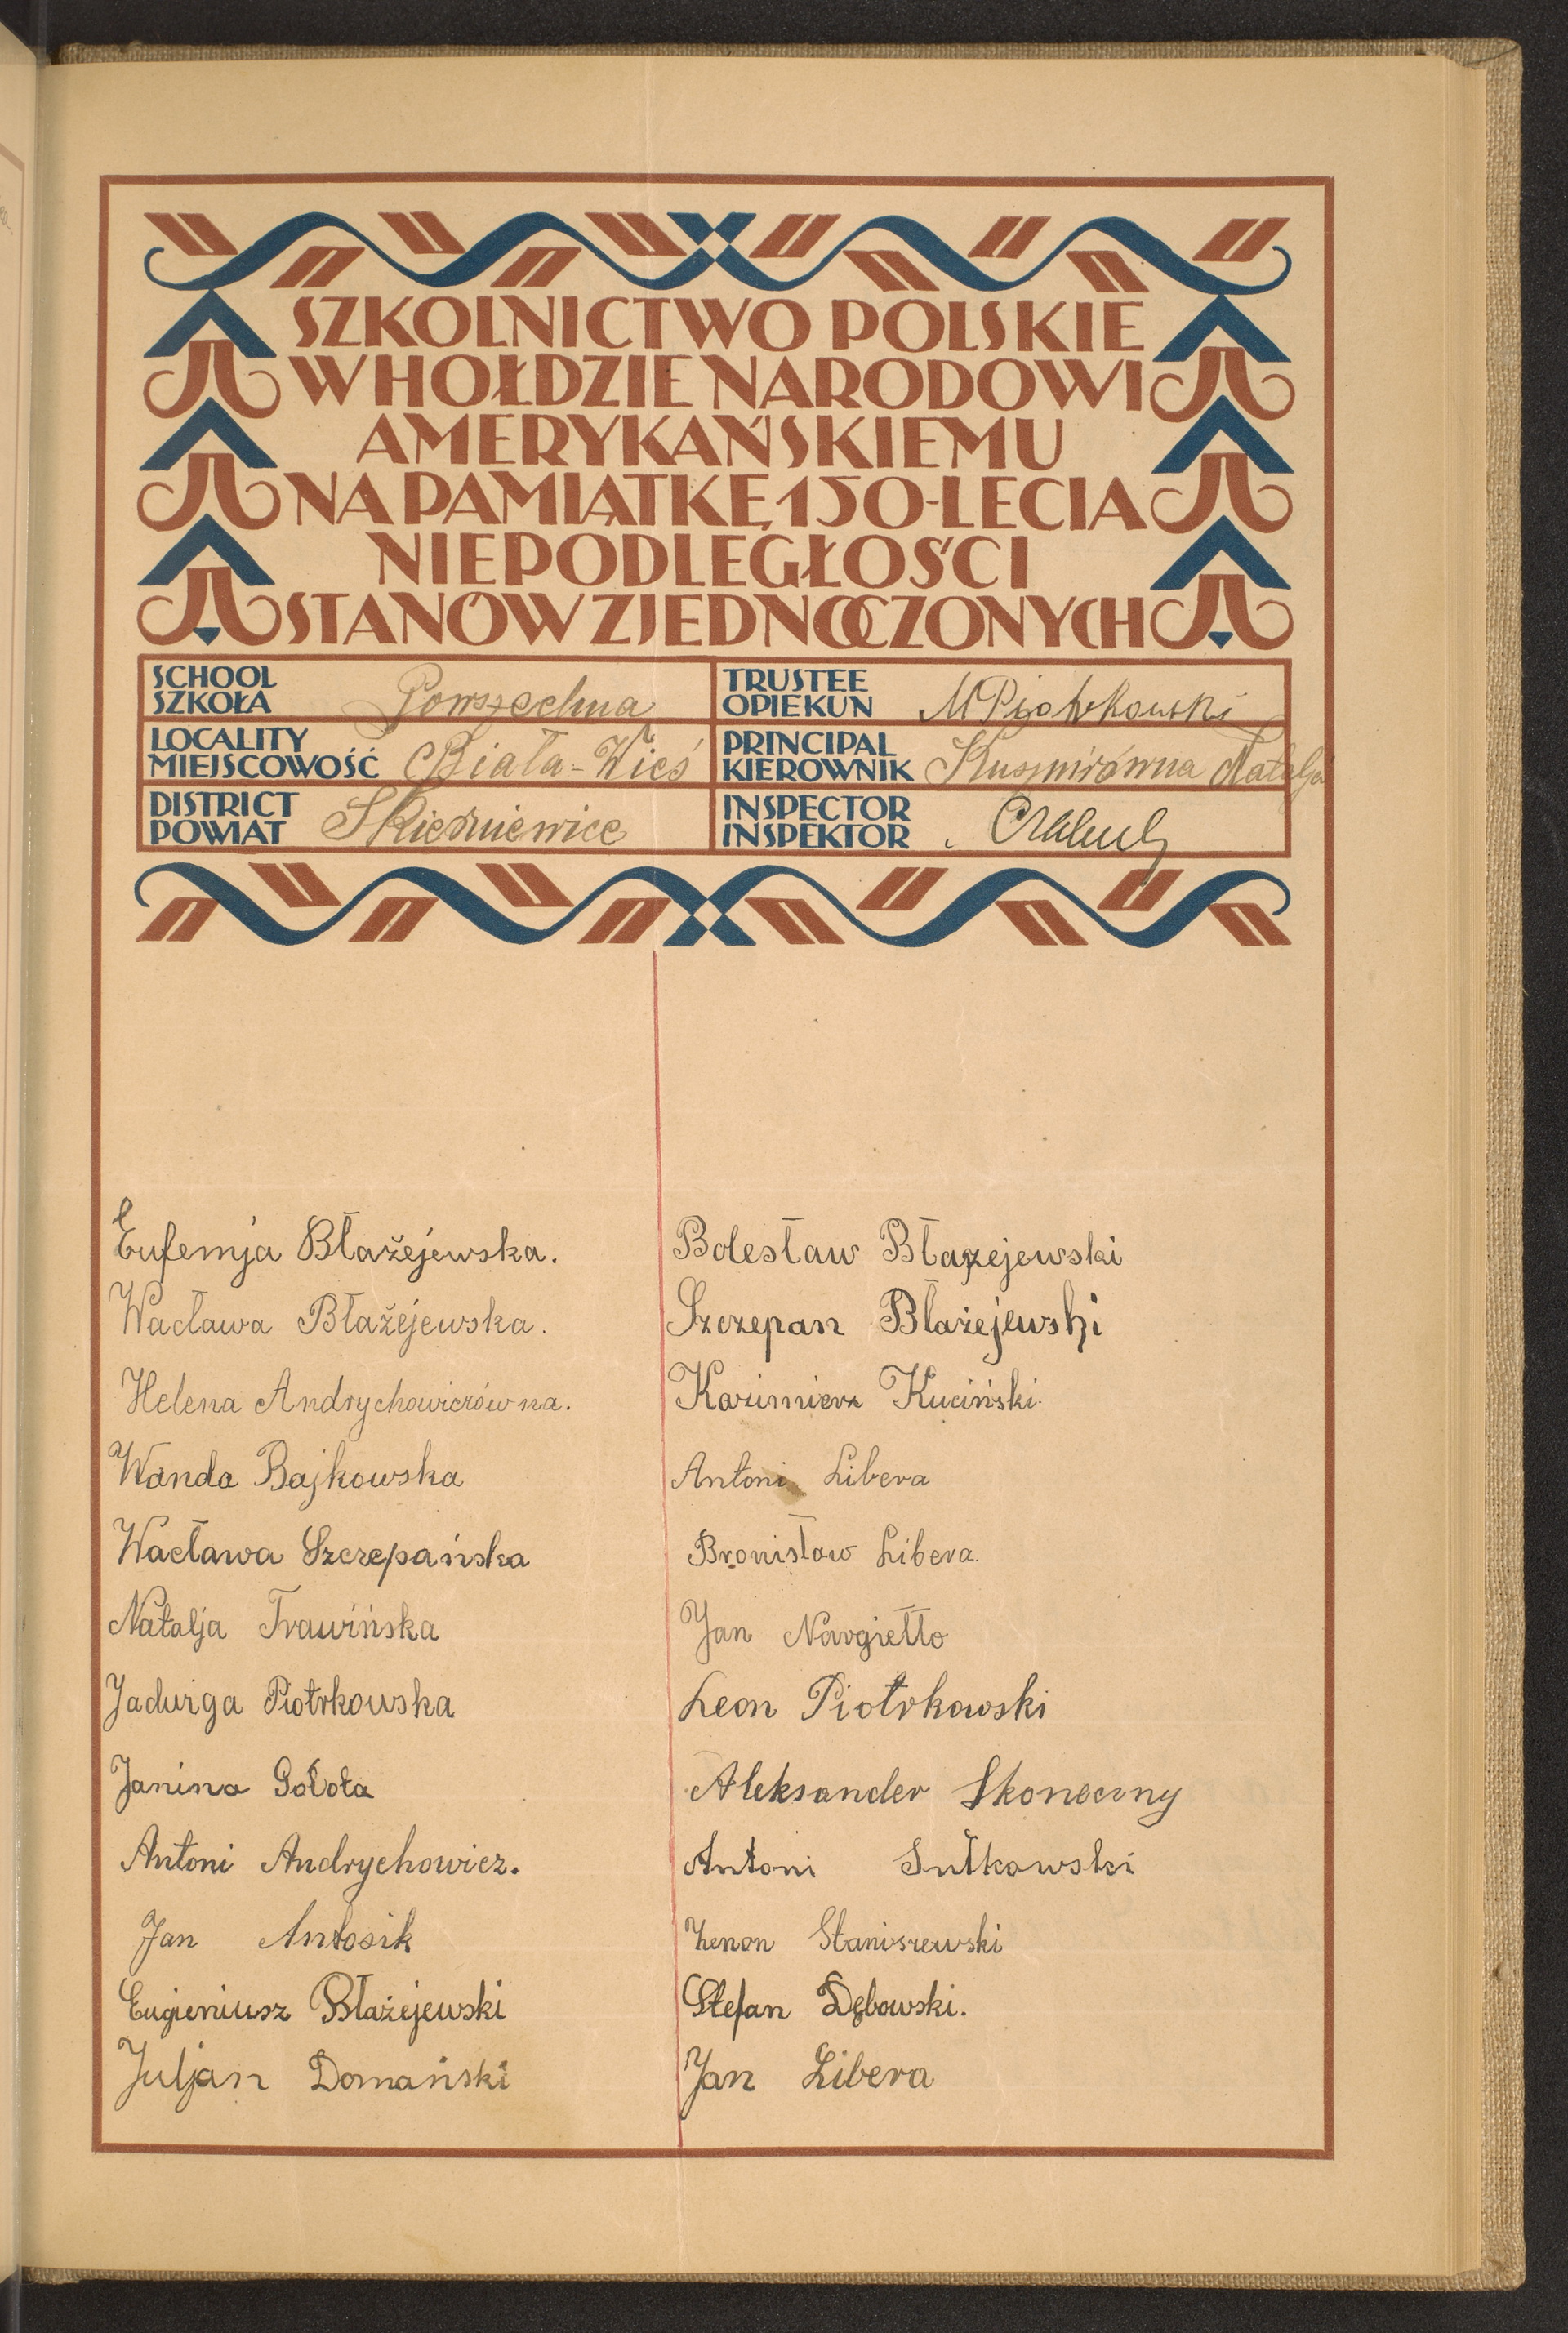 SZKOLNICTWO POLSKIE
W HOŁDZIE NARODOWI
AMERYKAŃSKIEMU
NA PAMIĄTKĘ 150-LECIA
NIEPODLEGŁOŚCI
STANÓW ZJEDNOCZONYCH
SCHOOL
SZKOŁA Powszechna
TRUSTEE
OPIEKUN M Piotrkowski
LOCALITY
MIEJSCOWOŚĆ Biała-Wieś
PRINCIPAL
KIEROWNIK Kuszmirówna Natalja
DISTRICT
POWIAT Skierniewice
INSPECTOR
INSPEKTOR
Eufemja Błażejewska.
Wacława Błażejewska.
Helena Andrychowiczówna.
Wanda Bajkowska
Wacława Szczepańska
Natalja Trawińska
Jadwiga Piotrkowska
Janina Gołota
Antoni Andrychowicz.
Jan Antosik
Eugieniusz Błażejewski
Juljan Domański
Bolesław Błażejewski
Szczepan Błażejewski
Kazimierz Kuciński.
Antoni Libera
Bronisław Libera.
Jan Nargiełło
Leon Piotrkowski
Aleksander Skoneczny
Antoni Sułkowski
Zenon Staniszewski
Stefan Dębowski.
Jan Libera